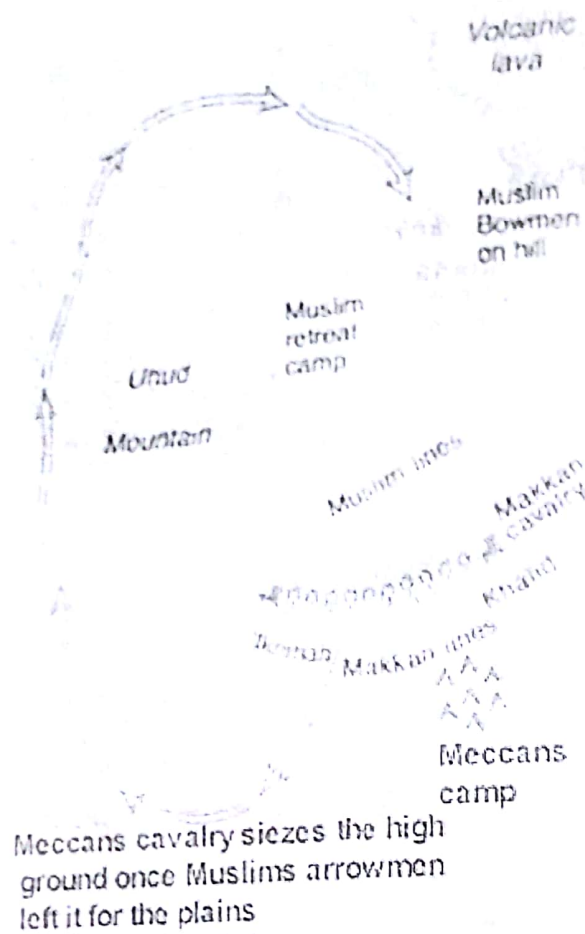 Volcanic
lava
Muslim
Bowmen
on hill
Muslim
retreat
camp
Uhud
Mountain
Muslim lines
Makkan
cavalry
Khalid
Makkan lines
Meccans
camp
Meccans cavalry siezes the high
ground once Muslims arrowmen
left it for the plains